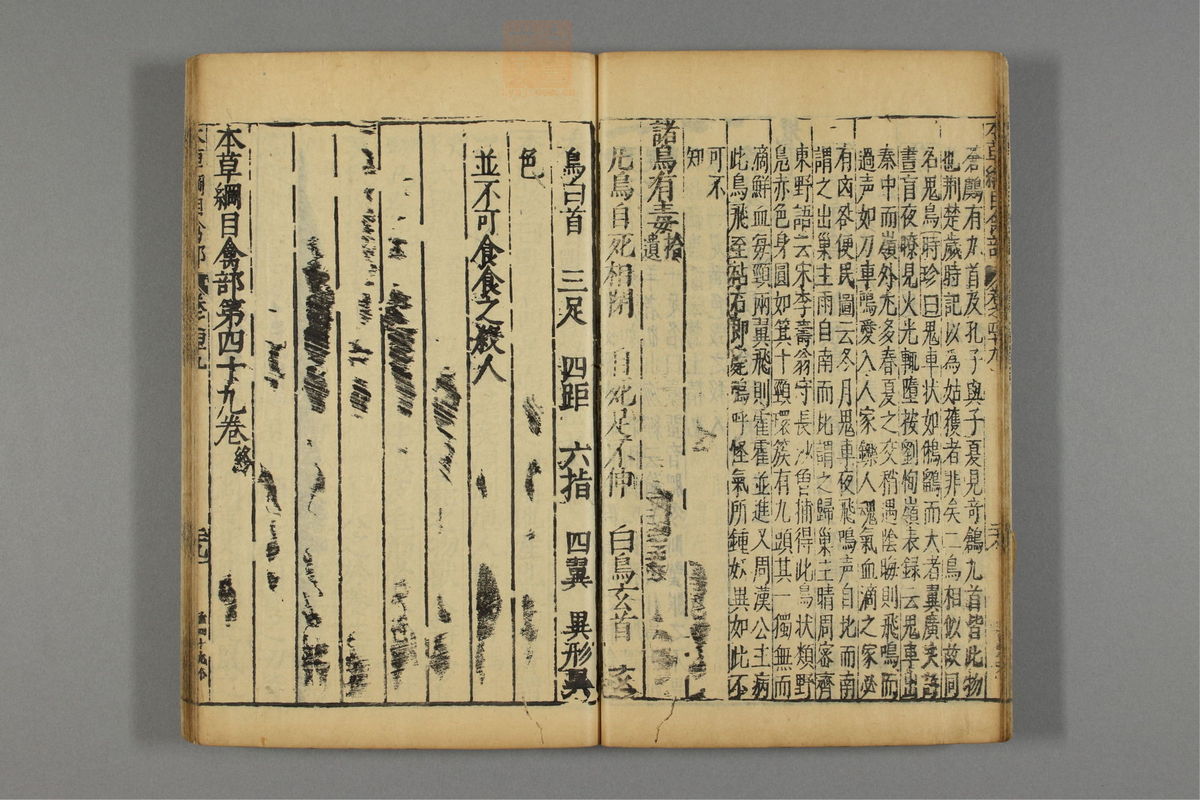 蒼鸆有九首及孔子與子夏見奇鶬九首皆此物
也荆楚歲時記以為姑獲者非矣二鳥相似故同
名鬼鳥時珍曰鬼車状如鵂鶹而大者翼廣丈許
晝盲夜瞭見火光輙墮按劉恂嶺表録云鬼車出
秦中而嶺外尤多春夏之交稍遇陰晦則飛鳴而
過声如刀車鳴愛入人家鑠人魂氣血滴之家必
有凶咎便民圖云冬月鬼車夜飛鳴声自北而南
謂之出巢主雨自南而北謂之歸巢主晴周密齊
東野語云宋李壽翁守長沙曾捕得此鳥状類野
鳬赤色身圓如箕十頸環簇有九頭其一獨無而
滴鮮血每頸兩翼飛則霍霍並進又周漢公主病
此鳥飛至砧石即薨嗚呼怪氣所鍾妖異如此不
可不
知
諸鳥有毒拾遺
凡鳥自死相閉 自死足不伸 白鳥玄首 玄
鳥白首 三足 四距 六指 四翼 異形異
色
並不可食食之殺人
本草綱目禽部第四十九卷終